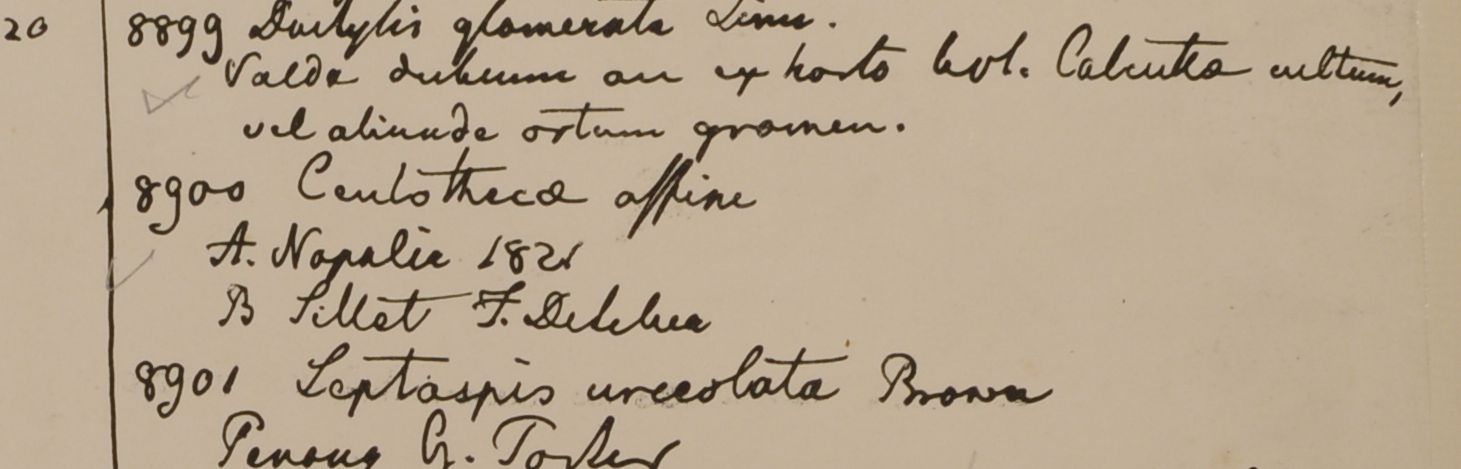 20 8899 Dactylis glomerata Linn.
Valde dubium an ex horto bot. Calcutta cultum,
vel aliunde ortum gramen.
8900 Centotheca affine
A. Napalia 1821
B Sillet F. De Silva
8901 Leptaspis urceolata Brown
Penang G. Porter